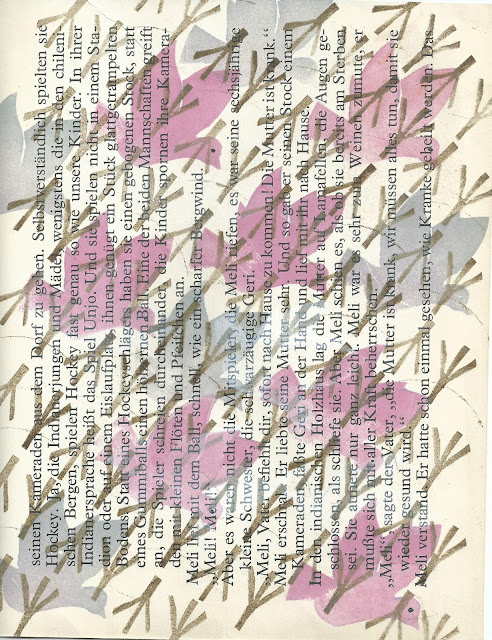 seinen Kameraden aus dem Dorf zu gehen. Selbstverständlich spielten sie
Hockey. Ja, die Indianerjungen und Mädel, wenigstens die in den chileni-
schen Bergen, spielen Hockey fast genau so wie unsere Kinder. In ihrer
Indianersprache heißt das Spiel Unjo. Und sie spielen nicht in einem Sta-
dion oder auf einem Eislaufplatz. Ihnen genügt ein Stück glattgetrampelten
Bodens. Statt eines Hockeyschlägers haben sie einen gebogenen Stock, statt
eines Gummiballs einen hölzernen Ball. Eine der beiden Mannschaften greift
an, die Spieler schreien durcheinander, die Kinder spornen ihre Kamera-
den mit kleinen Flöten und Pfeifchen an.
Meli lief mit dem Ball, schnell, wie ein scharfer Bergwind.
„Meli! Meli!“
Aber es waren nicht die Mitspieler, die Meli riefen, es war seine sechsjährige
kleine Schwester, die schwarzäugige Geri.
Meli, Vater befiehlt dir, sofort nach Hause zu kommen! Die Mutter ist krank.“
Meli erschrak. Er liebte seine Mutter sehr. Und so gab er seinen Stock einem
Kameraden, faßte Geri an der Hand und lief mit ihr nach Hause.
In dem indianischen Holzhaus lag die Mutter auf Lamafellen, die Augen ge-
schlossen, als schliefe sie. Aber Meli schien es, als ob sie bereits am Sterben
sei. Sie atmete nur ganz leicht. Meli war es sehr zum Weinen zumute, er
mußte sich mit aller Kraft beherrschen.
„Meli,“ sagte der Vater, „die Mutter ist krank, wir müssen alles tun, damit sie
wieder gesund wird.“
Meli verstand. Er hatte schon einmal gesehen, wie Kranke geheilt werden. Das